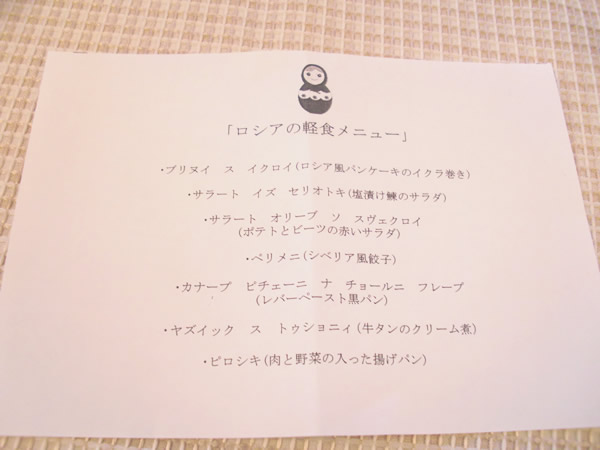 「ロシアの軽食メニュー」
・ブリヌイ ス イクロイ(ロシア風パンケーキのイクラ巻き)
・サラート イズ セリオトキ(塩漬け鰊のサラダ)
・サラート オリーブ ソ スヴェクロイ
(ポテトとビーツの赤いサラダ)
・ペリメニ(シベリア風餃子)
・カナープ ピチェーニ ナ チョールニ フレープ
(レバーペースト黒パン)
・ヤズイック ス トゥショニィ(牛タンのクリーム煮)
・ピロシキ(肉と野菜の入った揚げパン)